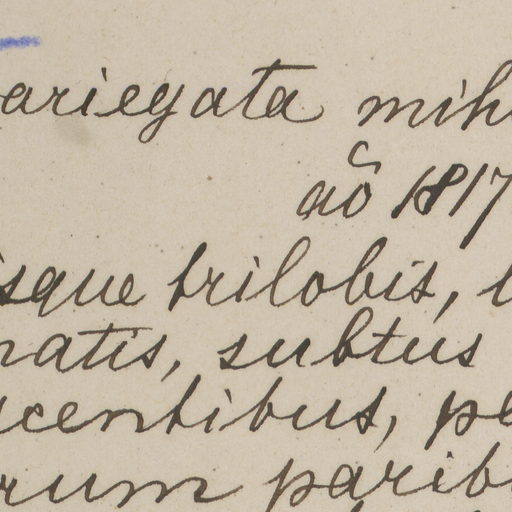 ariegata mih
aô 1817
sque trilobis,
natis, subtus
scentibus, pe
rum parib